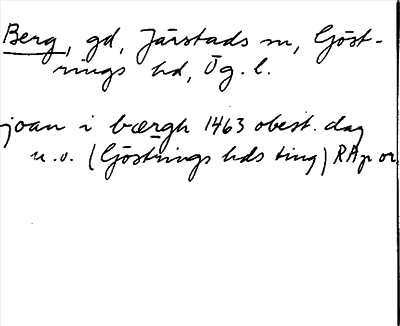 Berg, gd, Järstads sn, Göst-
rings hd, Ög. l.
joan i bærgh 1463 obest. dag
u.o. (Göstrings hds ting) RAp or